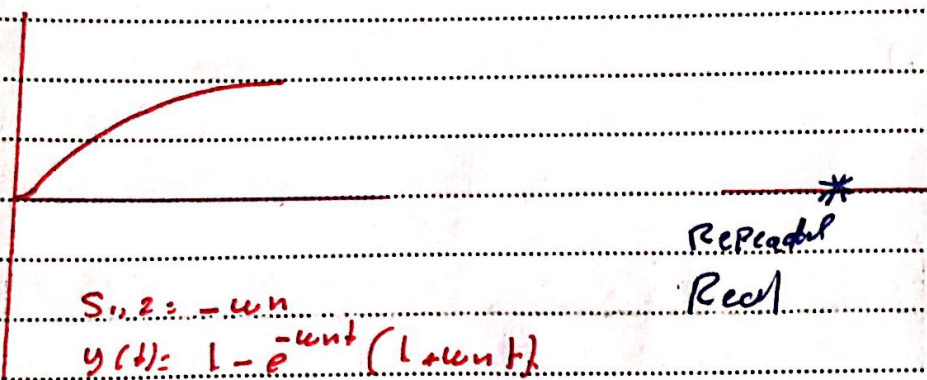 Repeadted
Real
S₁,₂ = -ωn
y(t) = 1 - e^-ωnt (1 + ωnt)